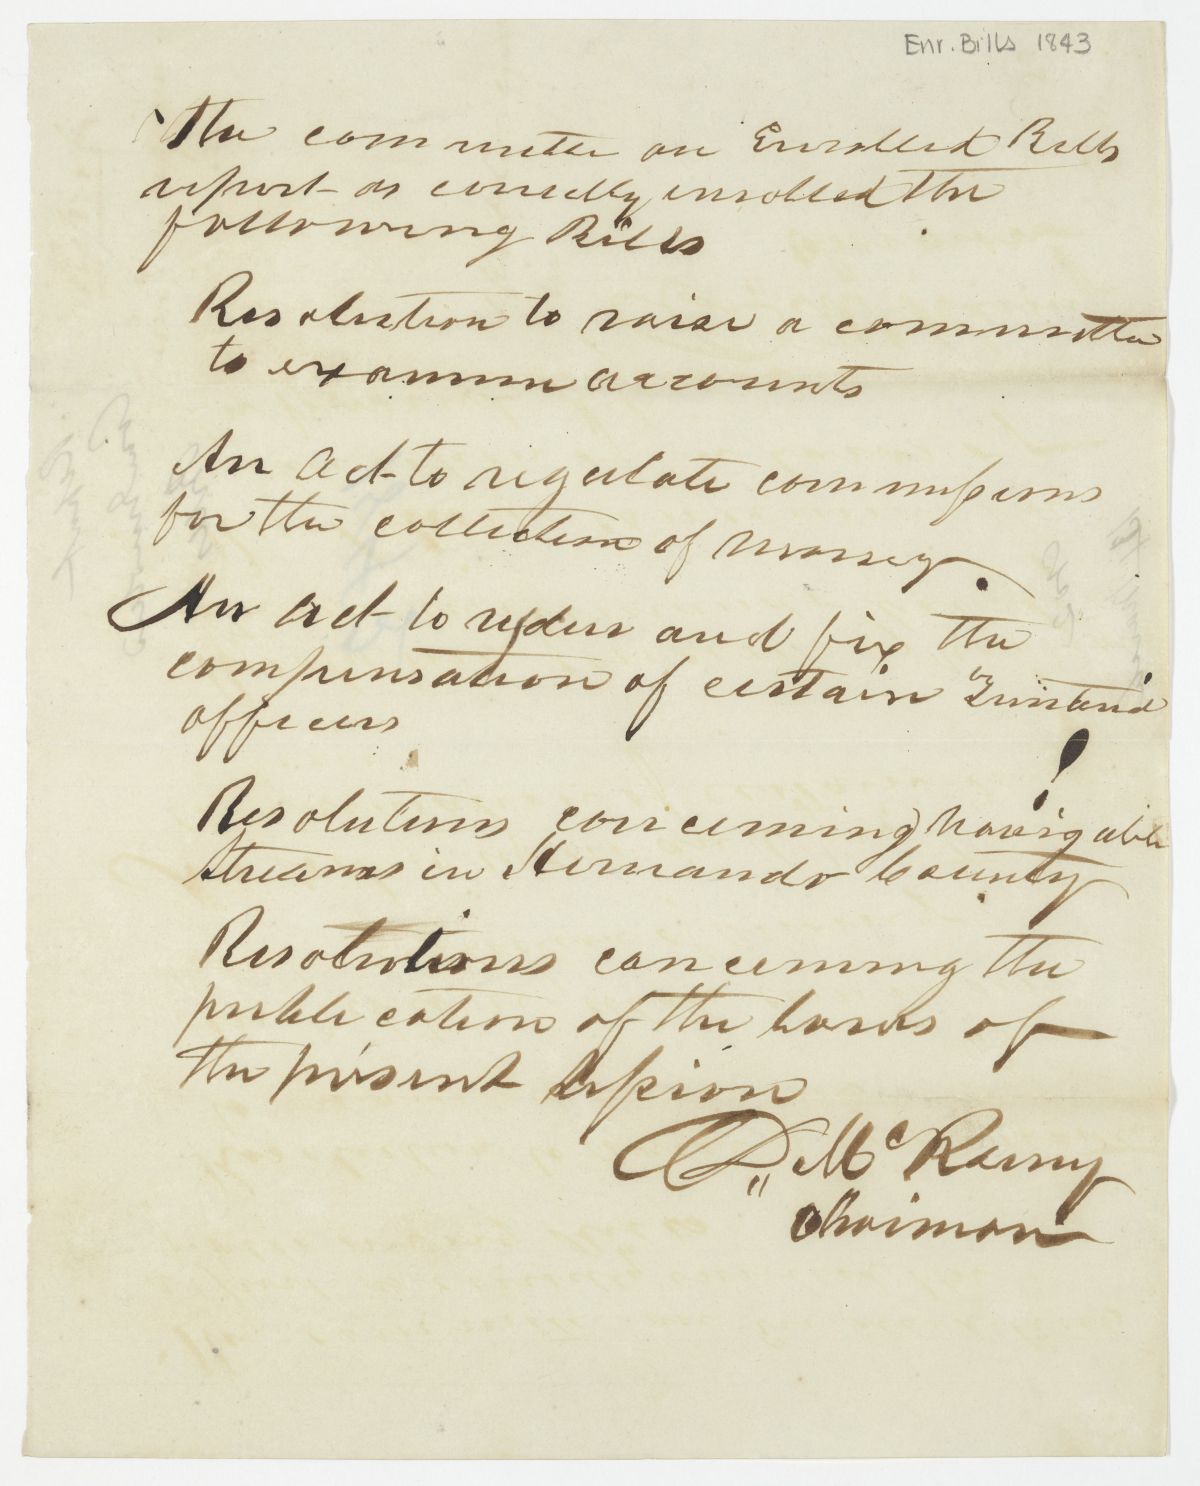 Enr. Bills 1843
The committee on Enrolled Bills
report as correctly enrolled the
following Bills
Resolution to raise a committee
to examine accounts
An act to regulate commissions
for the collection of money.
An act to reduce and fix the
compensation of certain
officers
Resolutions concerning navigable
streams in Hernando County
Resolutions concerning the
publication of the laws of
the present session
D,, McRaeny
Chairman